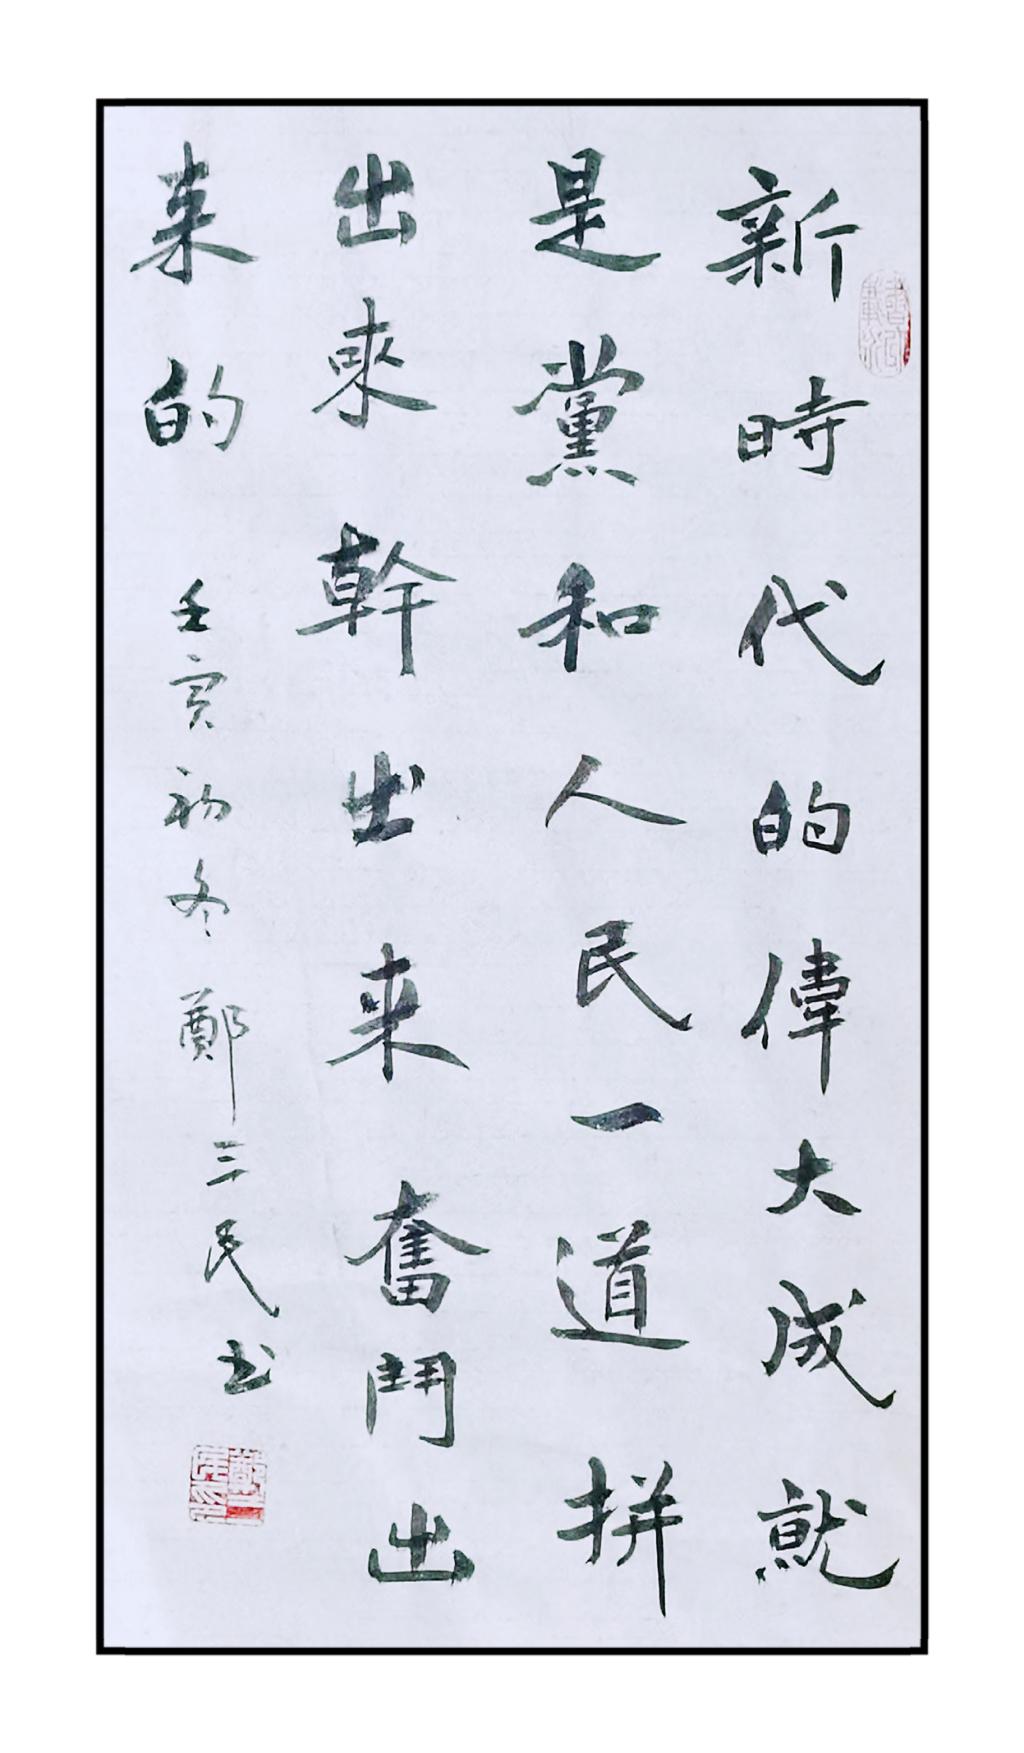 新時代的偉大成就
是黨和人民一道拼
出來幹出来奮鬥出
来的
壬寅初冬鄭三民书